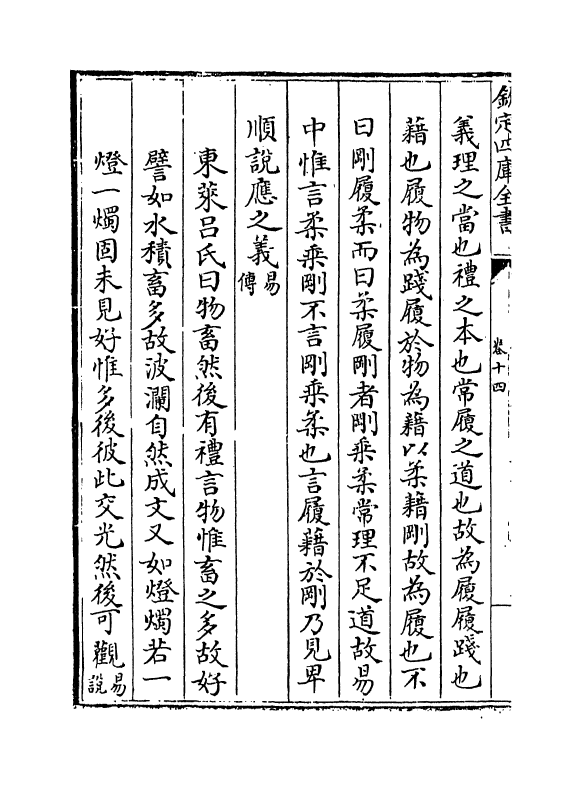 欽定四庫全書
卷十四
義理之當也禮之本也常履之道也故為履履踐也
藉也履物為踐履於物為藉以柔藉剛故為履也不
曰剛履柔而曰柔履剛者剛乘柔常理不足道故易
中惟言柔乘剛不言剛乘柔也言履藉於剛乃見卑
順說應之義易傳
東萊呂氏曰物畜然後有禮言物惟畜之多故好
譬如水積畜多故波瀾自然成文又如燈燭若一
燈一燭固未見好惟多後彼此交光然後可觀易說